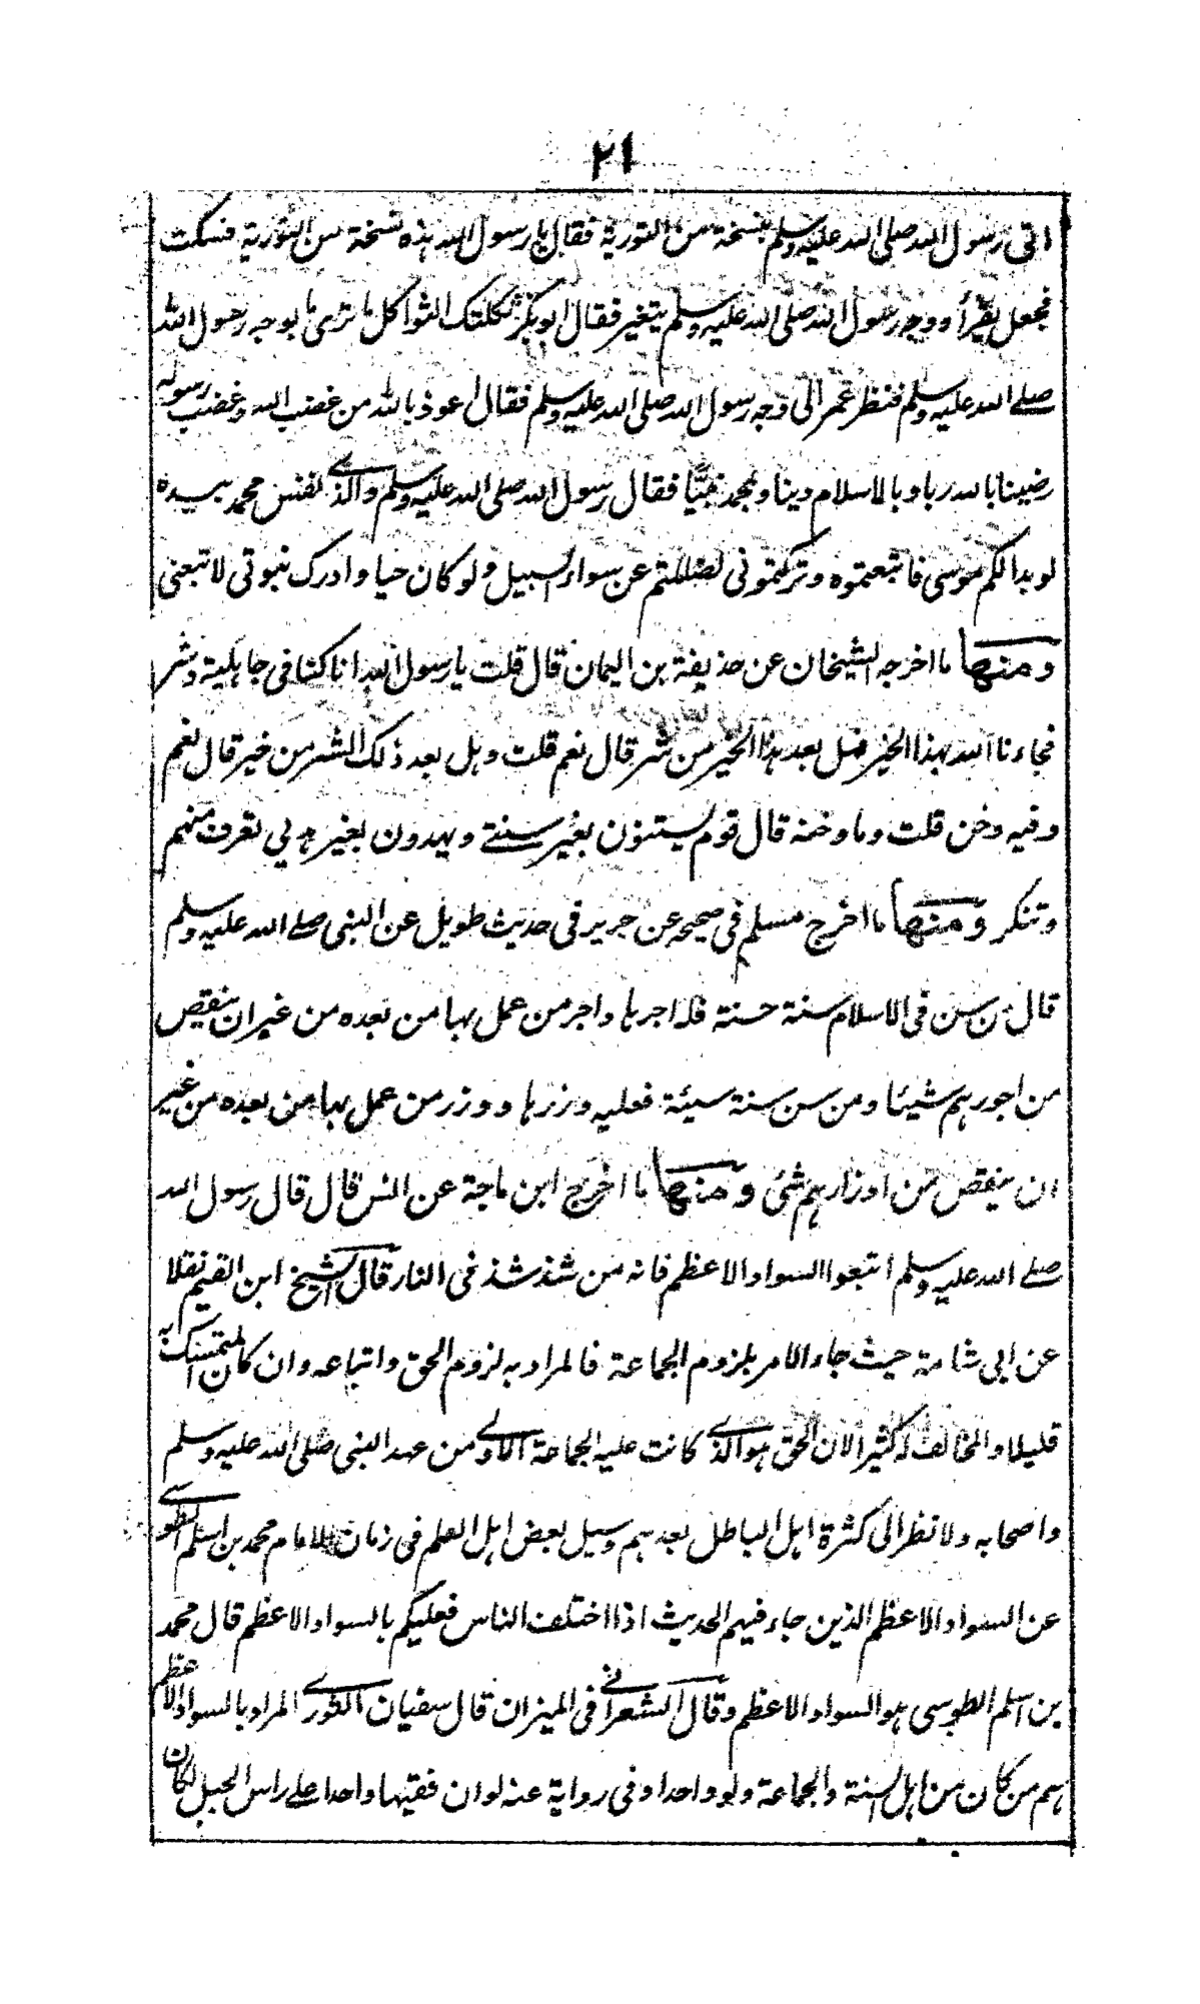 ٢١
اتى رسول الله صلى الله عليه وسلم بنسخة من التورية فقال يا رسول الله هذه نسخة من التورية فسكت
فجعل يقرأ ووجه رسول الله صلى الله عليه وسلم يتغير فقال ابو بكر ثكلتك الثواكل ما ترى ما بوجه رسول الله
صلے الله عليه وسلم فنظر عمر الى وجه رسول الله صلى الله عليه وسلم فقال اعوذ بالله من غضب الله وغضب رسوله
رضينا بالله ربا وبالاسلام دينا وبمحمد نبيًا فقال رسول الله صلى الله عليه وسلم والذے نفس محمد بيده
لو بدا لكم موسى فاتبعتموه وتركتمونى لضللتم عن سواء السبيل ولو كان حيا وادرك نبوتى لاتبعنى
ومنها ما اخرجه الشيخان عن حذيفة بن اليمان قال قلت يا رسول الله انا كنا فى جاهلية وشر
فجاءنا الله بهذا الخير فهل بعد هذا الخير من شر قال نعم قلت وهل بعد ذلك الشر من خير قال نعم
وفيه دخن قلت وما دخنه قال قوم يستنون بغير سنتے ويهدون بغير هديى تعرف منهم
وتنكر ومنها ما اخرج مسلم فى صحيحه عن جرير فى حديث طويل عن النبى صلے الله عليه وسلم
قال من سن فى الاسلام سنة حسنة فله اجرها واجر من عمل بها من بعده من غير ان ينقص
من اجورهم شيئا ومن سن سنة سيئة فعليه وزرها ووزر من عمل بها من بعده من غير
ان ينقص من اوزارهم شئ ومنها ما اخرج ابن ماجة عن انس قال قال رسول الله
صلے الله عليه وسلم اتبعوا السواد الاعظم فانه من شذ شذ فى النار قال الشيخ ابن القيم نقلا
عن ابى شامة حيث جاء الامر بلزوم الجماعة فالمراد به لزوم الحق واتباعه وان كان المتمسك به
قليلا والمخالف له كثيرا لان الحق هو الذے كانت عليه الجماعة الاولے من عهد النبى صلى الله عليه وسلم
واصحابه ولا نظر الى كثرة اهل الباطل بعدهم وسيل بعض اهل العلم فى زمان الامام محمد بن اسلم الطوسے
عن السواد الاعظم الذين جاء فيهم الحديث اذا اختلف الناس فعليكم بالسواد الاعظم قال محمد
بن اسلم الطوسى هو السواد الاعظم وقال الشعرانے فى الميزان قال سفيان الثورے المراد بالسواد الاعظم
هم من كان من اهل السنة والجماعة ولو واحدا وفى رواية عنه لو ان فقيها واحدا علے راس الجبل لكان